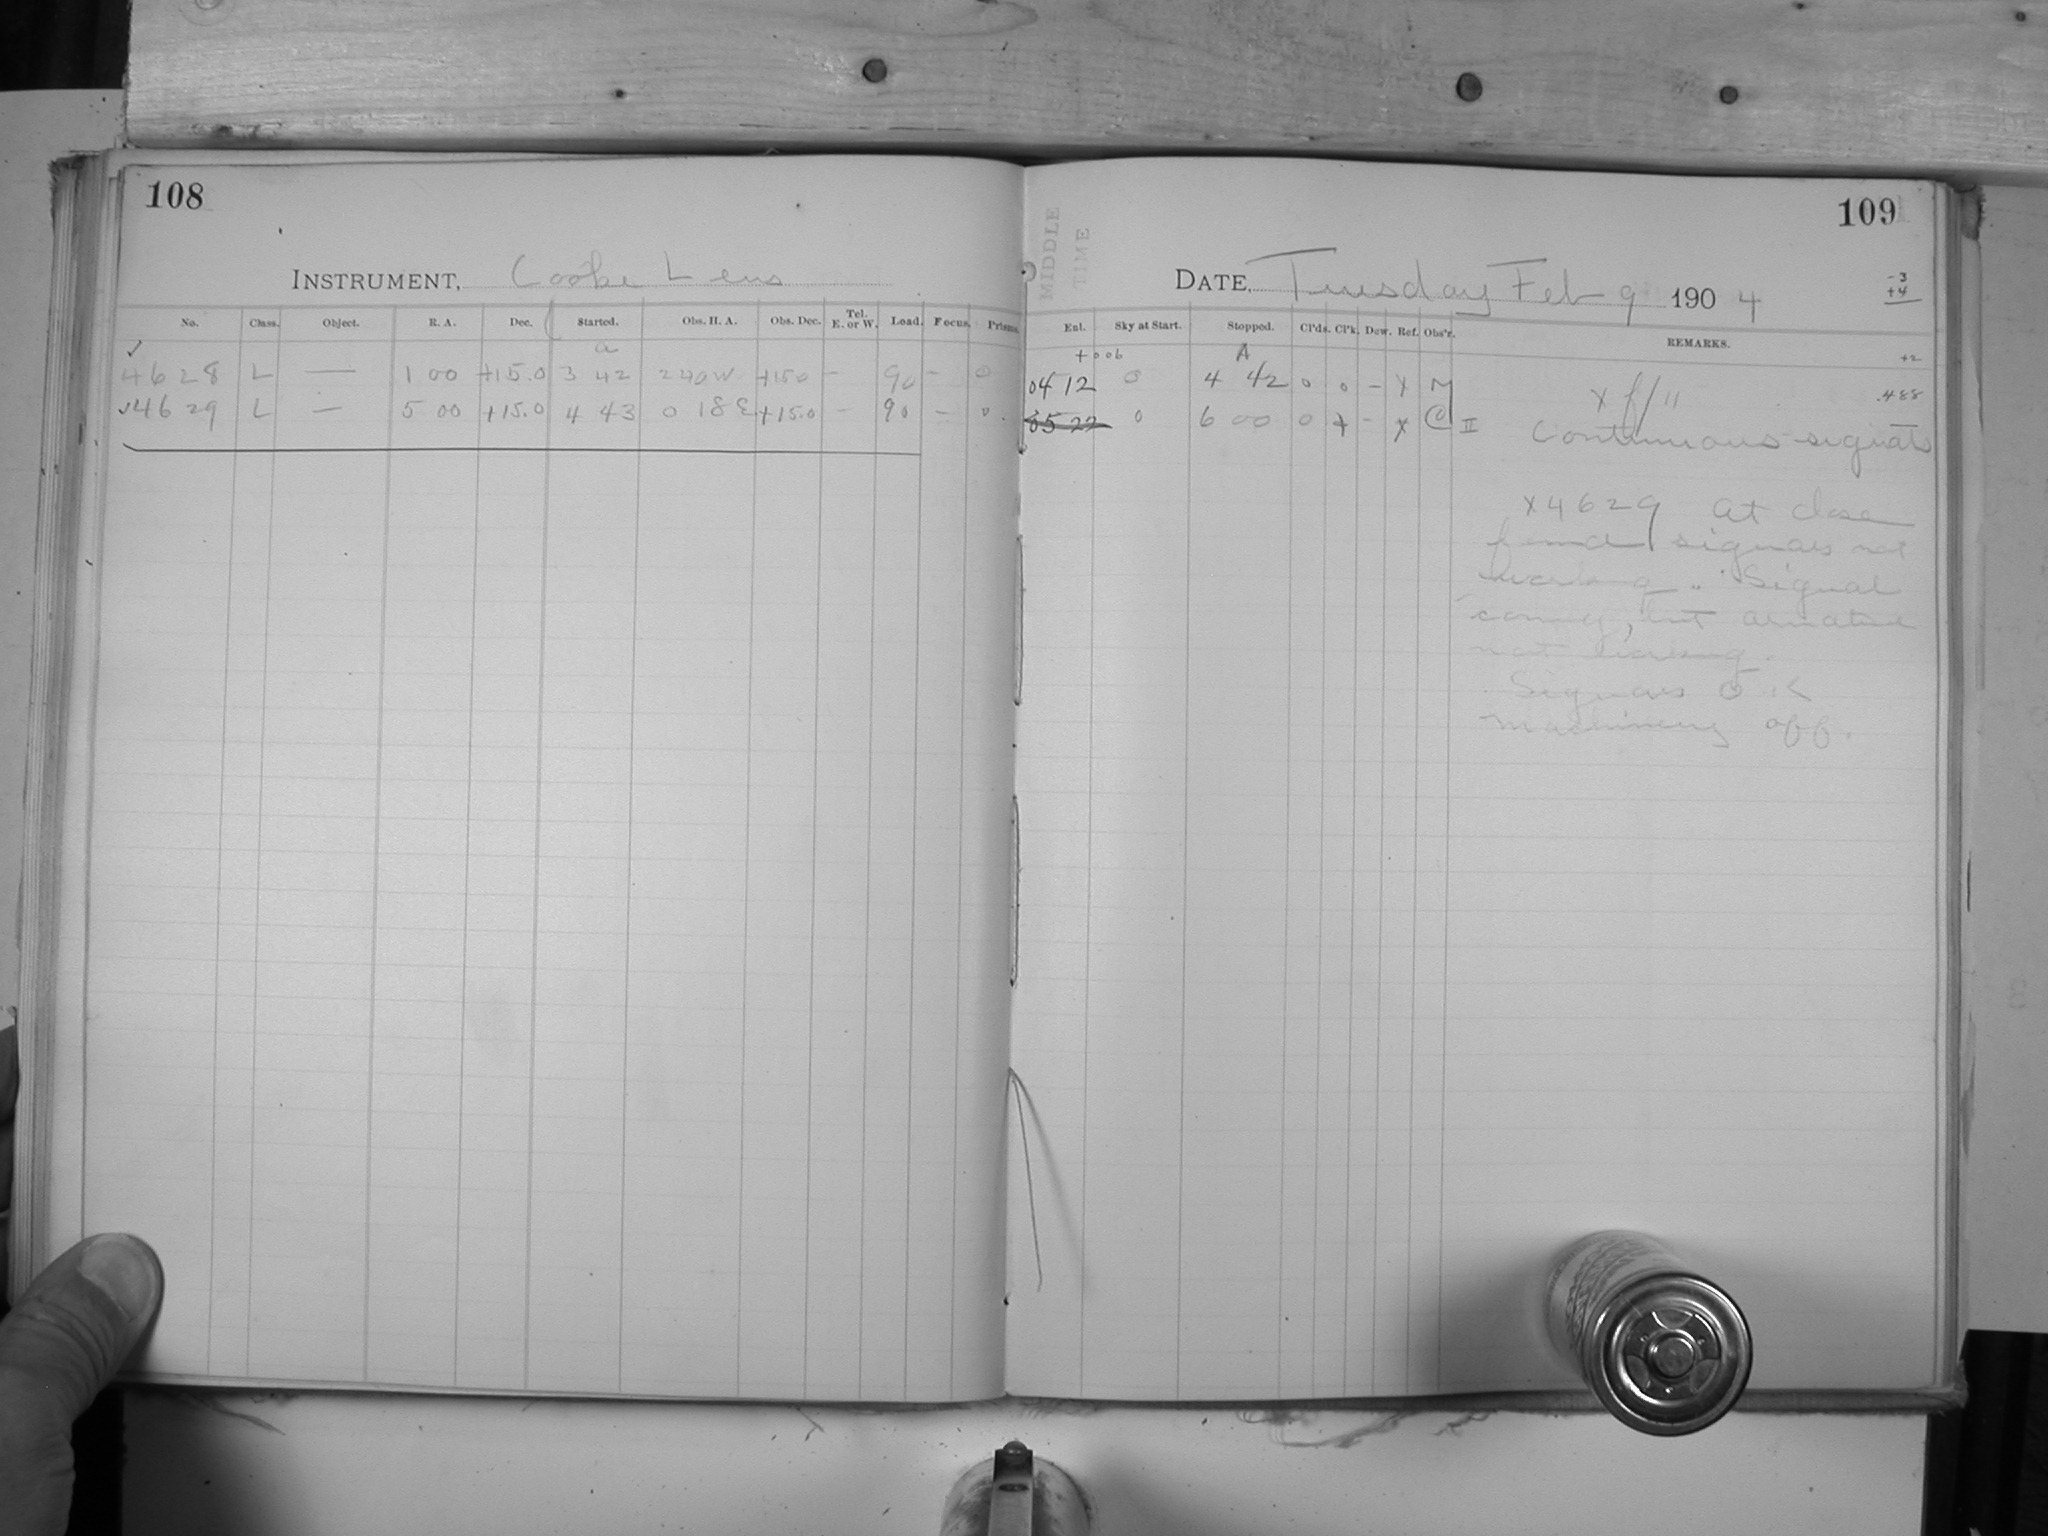 108
INSTRUMENT, Cooke Lens
No. Class. Object. R. A. Dec. Started. Obs. H. A. Obs. Dec. Tel. E. or W. Load. Focus. Prisms.
a
✓
4628 L — 1 00 +15.0 3 42 2 40 W +15.0 – 90 – 0
✓4629 L — 5 00 +15.0 4 43 0 18 E +15.0 – 90 – 0
109
MIDDLE
TIME
DATE, Tuesday Feb 9 1904
-3
+4
Enl. Sky at Start. Stopped. Cl'ds. Cl'k. Dew. Ref. Obs'r. REMARKS.
+006 A +2
0412 0 4 42 0 0 – X M X f/11 .488
0522 0 6 00 0 + – X C II Continuous signals
X 4629 At close
found signals not
working. Signal
coming, but armature
not working.
Signals O K
Machinery off.